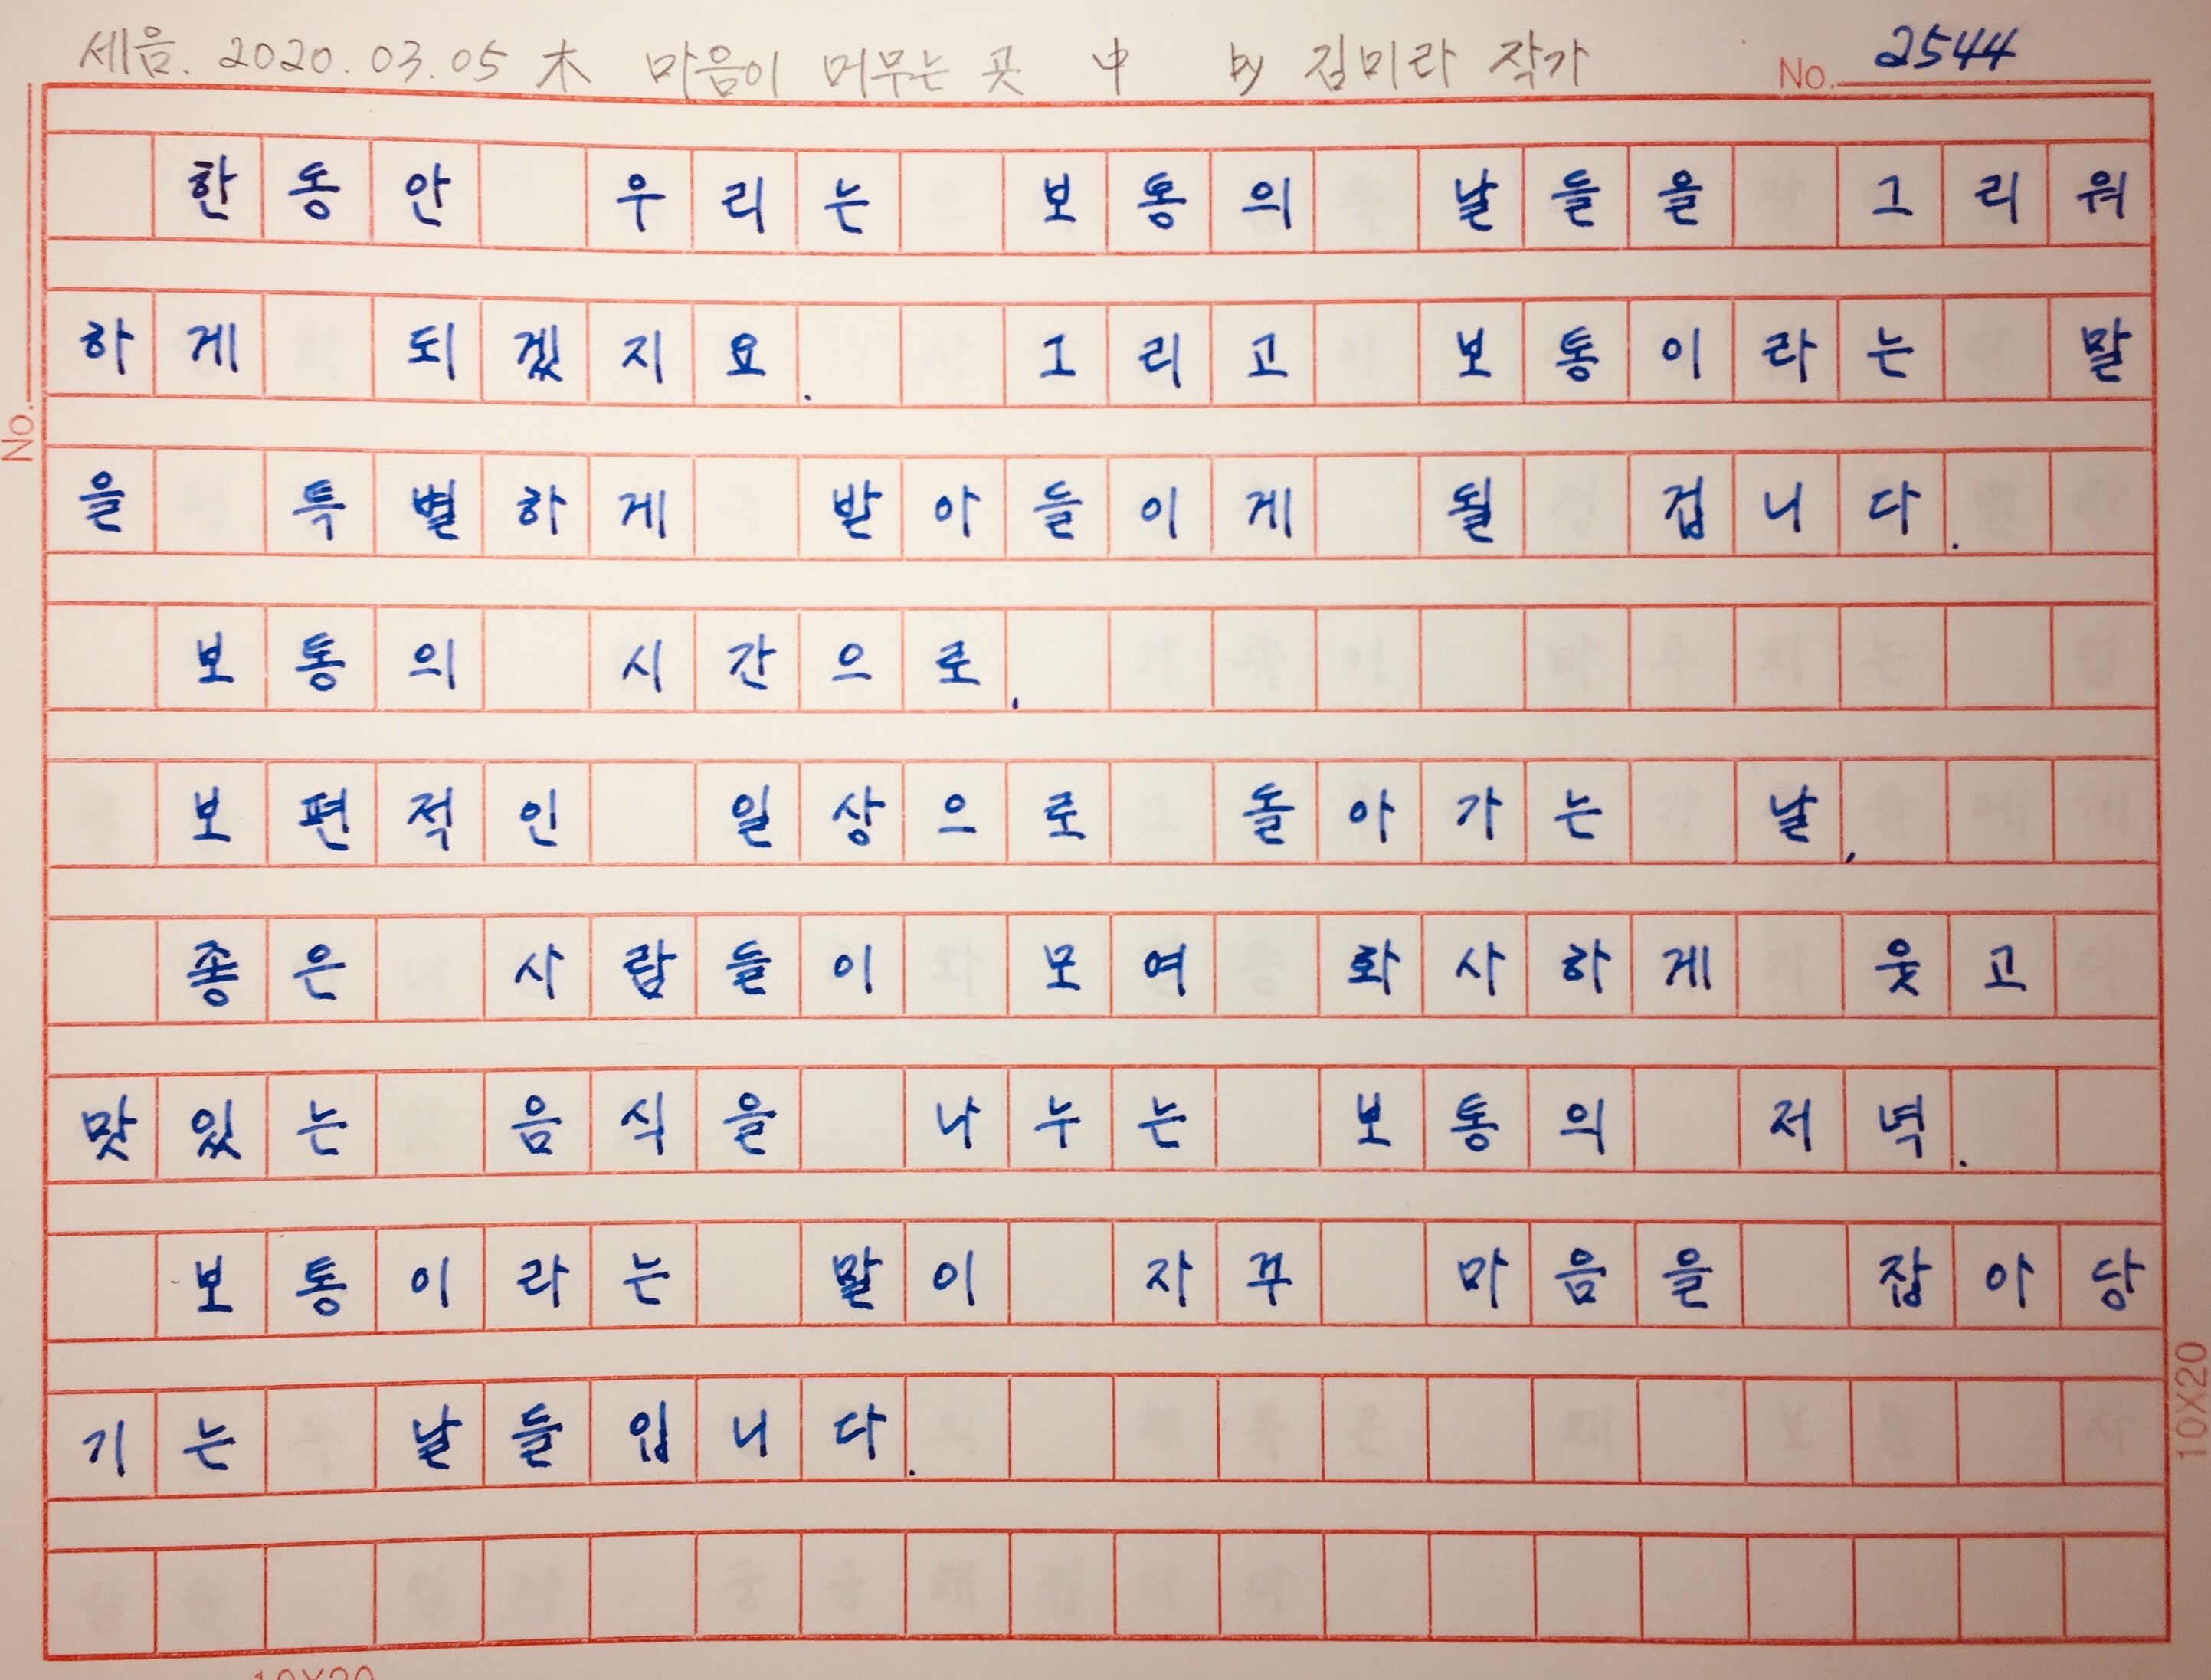 세음. 2020.03.05 木 마음이 머무는 곳 中 by 김미라 작가 No. 2544
한동안 우리는 보통의 날들을 그리워
하게 되겠지요. 그리고 보통이라는 말
No.
을 특별하게 받아들이게 될 겁니다.
보통의 시간으로.
보편적인 일상으로 돌아가는 날,
좋은 사람들이 모여 화사하게 웃고
맛있는 음식을 나누는 보통의 저녁.
보통이라는 말이 자꾸 마음을 잡아당
기는 날들입니다.
10X20
10X20